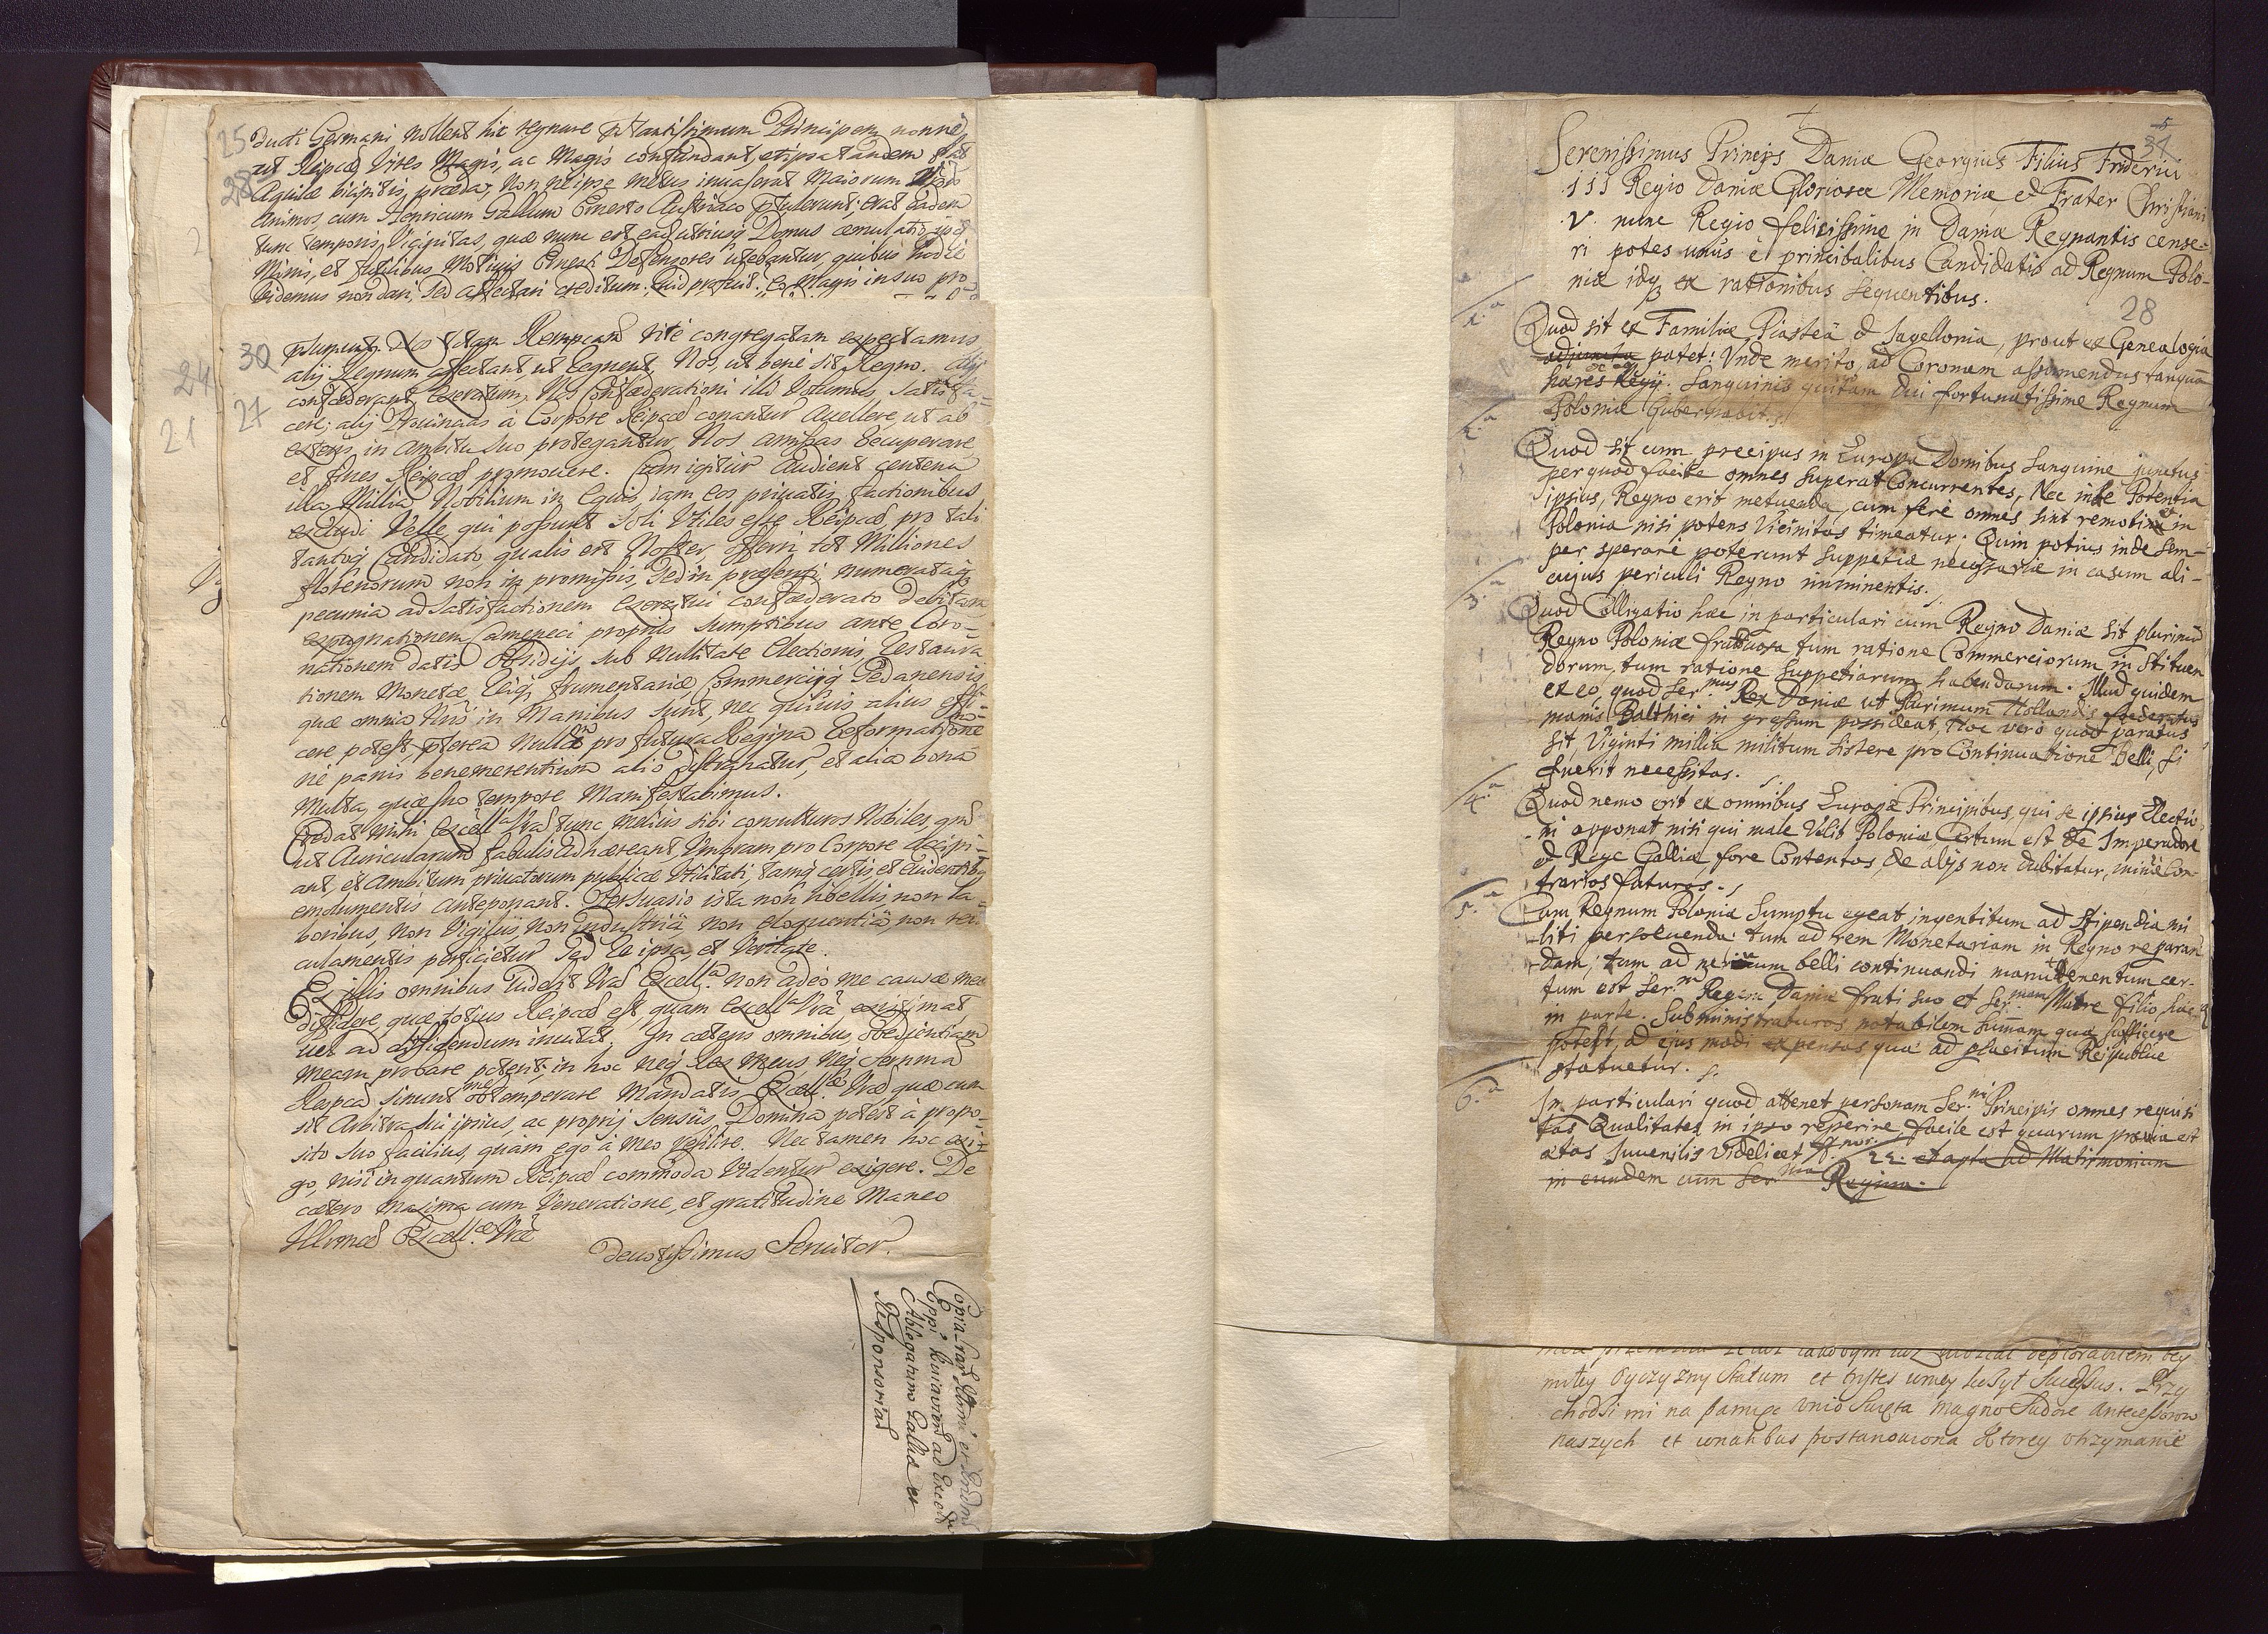 25
ducti Germani nollent hic regnare Pstantissimum Principem nonne
ut Reipcæ Vires Magis, ac Magis confundant, et ipsa tandem fiat
28
Aquilæ bicipitis præda, Non ne ipse metus inuaserat Maiorum
Animos cum Henricum Gallum Ernesto Austriaco Ptulerunt; erat eadem
tunc temporis Vicinitas, quæ nunc est eadem utriusq Domus æmulatio
Minis, et futilibus Motiuis Ernesti Defensores utebantur, quibus hodie
Videmus non dari, sed affectari creditum. Quid profuit.
30
24
27
21
totam Rempcam rite congregatam expectamus
alij Regnum affectant, ut Regnent, Nos, ut bene sit Regno. Alij
confæderant Exercitum, Nos Confæderationi illi Volumus satisfa-
cere; alij Prouincias à Corpore Reipcæ conantur Auellere, ut ab
exteris in Ambitu suo protegantur, Nos amissas Recuperare,
et fines Reipcæ promouere. Cum igitur Audient centena
illa Millia Nobilium in Equis, iam eos priuatis factionibus
excludi Velle, qui possunt soli Vtiles esse Reipcæ, pro tali
tantoq Candidato, qualis est Noster, offerri tot Milliones
florenorum non in promissis, sed in præsenti numerataq
pecunia ad satisfactionem Exercitui confæderato debitam
expugnationem Cameneci proprijs sumptibus ante Coro-
nationem datis Obsidijs, sub Nullitate Electionis, Restaura
tionem Monetæ, Reiq frumentariæ, Commercijq Gedanensis
quæ omnia in Manibus sunt, nec quiuis alius effi-
cere potest, pterea Nullam pro futura Regina Reformationem
ne panis benemerentium alio distrahatur, et alia bona
Multa, quæ suo tempore Manifestabimus.
Credat Mihi Excell.a Vra tunc melius sibi consulturos Nobiles, qud
ut Auricularum fabulis adhæreant, Vmbram pro Corpore accipi-
ant, et Ambitum priuatorum publicæ Vtilitati, tamq certis et euidentib9
emolumentis anteponant. Persuasio ista non libellis, non la-
boribus, non Vigilijs, non industriâ non eloquentiâ, non
culamentis perficietur sed Re ipsa, et Veritate.
Ex illis omnibus Videbit Vra Excell.a non adeo me causæ meæ
diffidere, quæ totius Reipcæ est quam Excell.a Vra existimat
uel ad diffidendum incitat. In cæteris omnibus obedientiam
meam probare poterit, in hoc neq Lex meus, neq summa
Respca sinunt me obtemperare Mandatis Excell.æ Vræ quæ cum
sit Arbitra sui ipsius, ac proprij sensus Domina potest à propo-
sito suo facilius, quàm ego à meo resilire. Nec tamen hoc exi-
go, nisi in quantum Reipcæ commoda Videntur exigere. De
cætero maxima cum Veneratione, et gratitudine Maneo
Illrmæ Excell.æ Vræ
Deuotissimus Seruitor.
Copia
Eppi Cuiauien ad Excell
Ablegatum Galliæ et
Responsoria
5
31
Serenissimus Princeps Daniæ Georgius Filius Friderici
.III Regio Daniæ Gloriosæ Memoriæ et Frater Christiani
.V. nunc Regio felicissime in Dania Regnantis cense-
ri potes unus è principalibus Candidatis ad Regnum Polo-
niæ idq ex rationibus sequentibus.
28
1.a
Quod sit ex Familiæ Piasteâ et Jagellonia, prout ex Genealogia
adjuncta patet: Vnde merito ad Coronam assumendus tanquā
hæres Regij Sanguinis quitam diu fortunatissime Regnum
Poloniæ Gubernabit.
2.a
Quod sit cum precipuis in Europa Domibus sanguine junctus
per quod facile omnes superat Concurrentes, Nec inde Potentia
ipsius, Regno erit metuenda, cum fere omnes sint remoti et in
Polonia nisi potens Vicinitas timeatur; Quin potius inde sem-
per sperare poterunt suppetiæ necessariæ in casum ali-
cujus periculi Regno imminentis.
3.a
Quod Colligatio hæc in particulari cum Regno Daniæ sit plurimū
Regno Poloniæ fructuosa tum ratione Commerciorum in stituen
dorum, tum ratione suppetiarum habendarum. Illud quidem
ex eo, quod Ser.mus Rex Daniæ ut plurimum Hollandis fæderatus
maris Balthici in gressum possideat, Hoc vero quod paratus
sit, Viginti millia militum sistere pro Continuatione Belli, si
fuerit necessitas.
4.a
Quod nemo erit ex omnibus Europæ Principibus, qui se ipsius Electio
ni opponat nisi qui male Velit Poloniæ Certum est de Imperadore
et Rege Galliæ, fore Contentos, de alijs non dubitatur, minime Con-
trarios futuros.
5.a
Cum Regnum Poloniæ sumptu egeat ingentitum ad stipendia mi
liti persoluenda tum ad rem Monetariam in Regno reparan
dam; tum ad belli continuandi manutenentum cer-
tum est Ser. Regem Daniæ frati suo et Ser.mam Matre filio suo
in parte. Subministraturos notabilem summam quæ sufficere
potest, ad ejus modi expensas quæ ad placitum Reipublicæ
statuetur.
6.a
In particulari quod attenet personam Ser.mi Principis omnes requisi
tas Qualitates in ipso reperire facile est quarum prævia est
ætas Juvenilis Videlicet 22. et apta ad Matrimonium
in eundem cum Ser.ma Regina.
miłey Oyczyzny Statum et tristes umey Successus. Przy
chodzi mi na pamięc Vnio Swięta magno Sudore Antecessorow
naszych et conatibus postanowiona Ktorey vtrzymanie